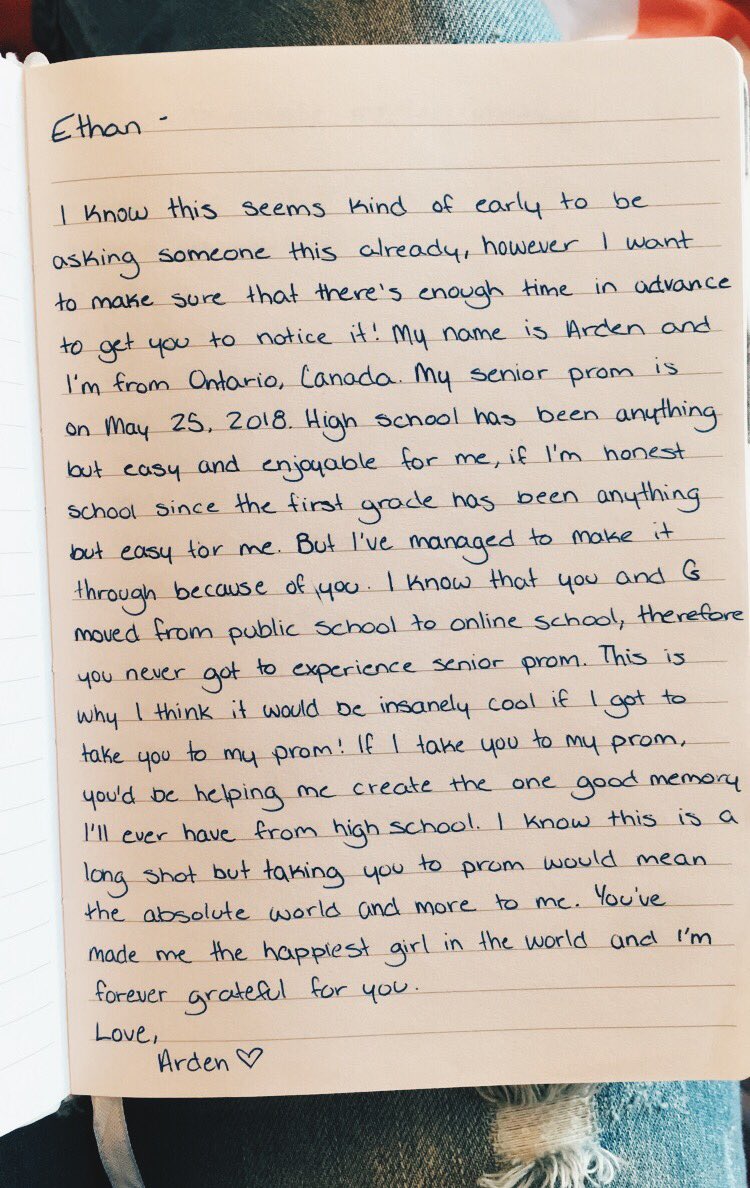 Ethan -
I know this seems kind of early to be
asking someone this already, however I want
to make sure that there's enough time in advance
to get you to notice it! My name is Arden and
I'm from Ontario, Canada. My senior prom is
on May 25, 2018. High school has been anything
but easy and enjoyable for me, if I'm honest
school since the first grade has been anything
but easy for me. But I've managed to make it
through because of you. I know that you and G
moved from public school to online school, therefore
you never got to experience senior prom. This is
why I think it would be insanely cool if I got to
take you to my prom! If I take you to my prom,
you'd be helping me create the one good memory
I'll ever have from high school. I know this is a
long shot but taking you to prom would mean
the absolute world and more to me. You've
made me the happiest girl in the world and I'm
forever grateful for you.
Love,
Arden ♡